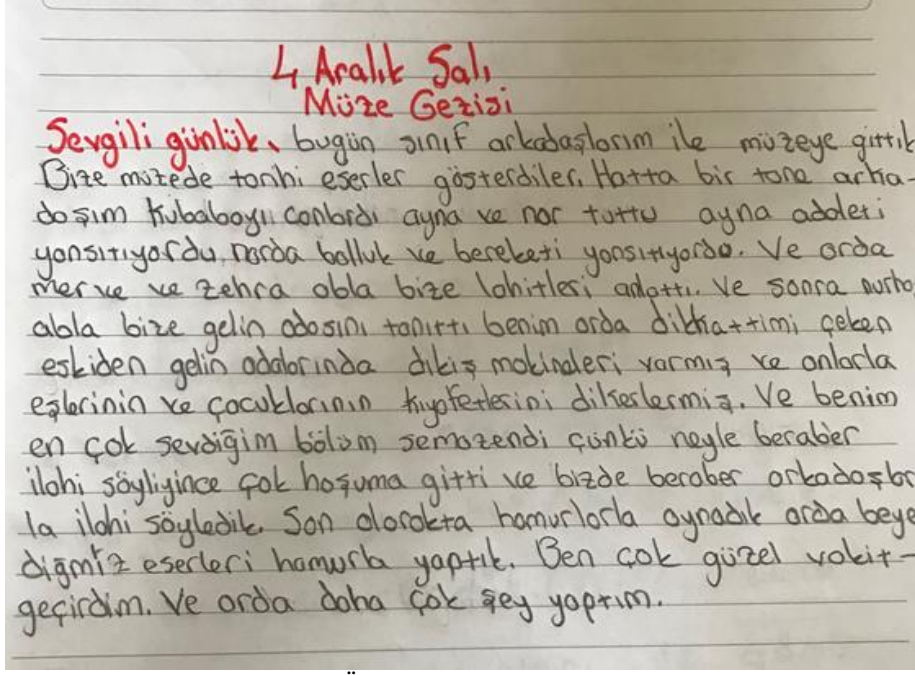 4 Aralık Salı
Müze Gezisi
Sevgili günlük, bugün sınıf arkadaşlarım ile müzeye gittik
Bize müzede tarihi eserler gösterdiler. Hatta bir tane arka-
daşım Kubabayıı canlardı ayna ve nar tuttu ayna adaleti
yansıtıyordu, narda bolluk ve bereketi yansıtıyordu. Ve orda
merve ve zehra abla bize lahitleri adattı. Ve sonra
abla bize gelin odasını tanıttı benim orda dikkattimi çeken
eskiden gelin odalarında dikiş makinaleri varmış ve onlarla
eşlerinin ve çocuklarının kıyafetlerini dikerlermiş. Ve benim
en çok sevdiğim bölüm semazendi çünkü neyle beraber
ilahi söyliyince çok hoşuma gitti ve bizde beraber arkadaşlar
la ilahi söyledik. Son olarakta hamurlarla oynadık orda beye
diğmiz eserleri hamurla yaptık. Ben çok güzel vakit-
geçirdim. Ve orda daha çok şey yaptım.